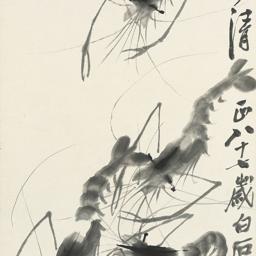 清
正八十七歲白石